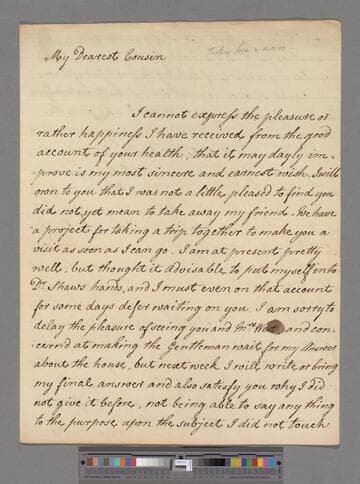 My Dearest Cousin
I cannot express the pleasure or
rather happiness I have received from the good
account of your health; that it may dayly im-
prove is my most sincere and earnest wish. I will
own to you that I was not a little pleased to find you
did not yet mean to take away my friend. We have
a project for taking a trip together to make you a
visit as soon as I can go. I am at present pretty
well, but thought it advisable to put myself into
Dr. Shaws hands, and I must even on that account
for some days defer waiting on you. I am sorry to
delay the pleasure of seeing you and Mrs. and con-
cern'd at making the Gentleman wait for my Answer
about the house, but next week I will write or bring
my final answer and also satisfy you why I did
not give it before, not being able to say any thing
to the purpose upon the subject I did not touch